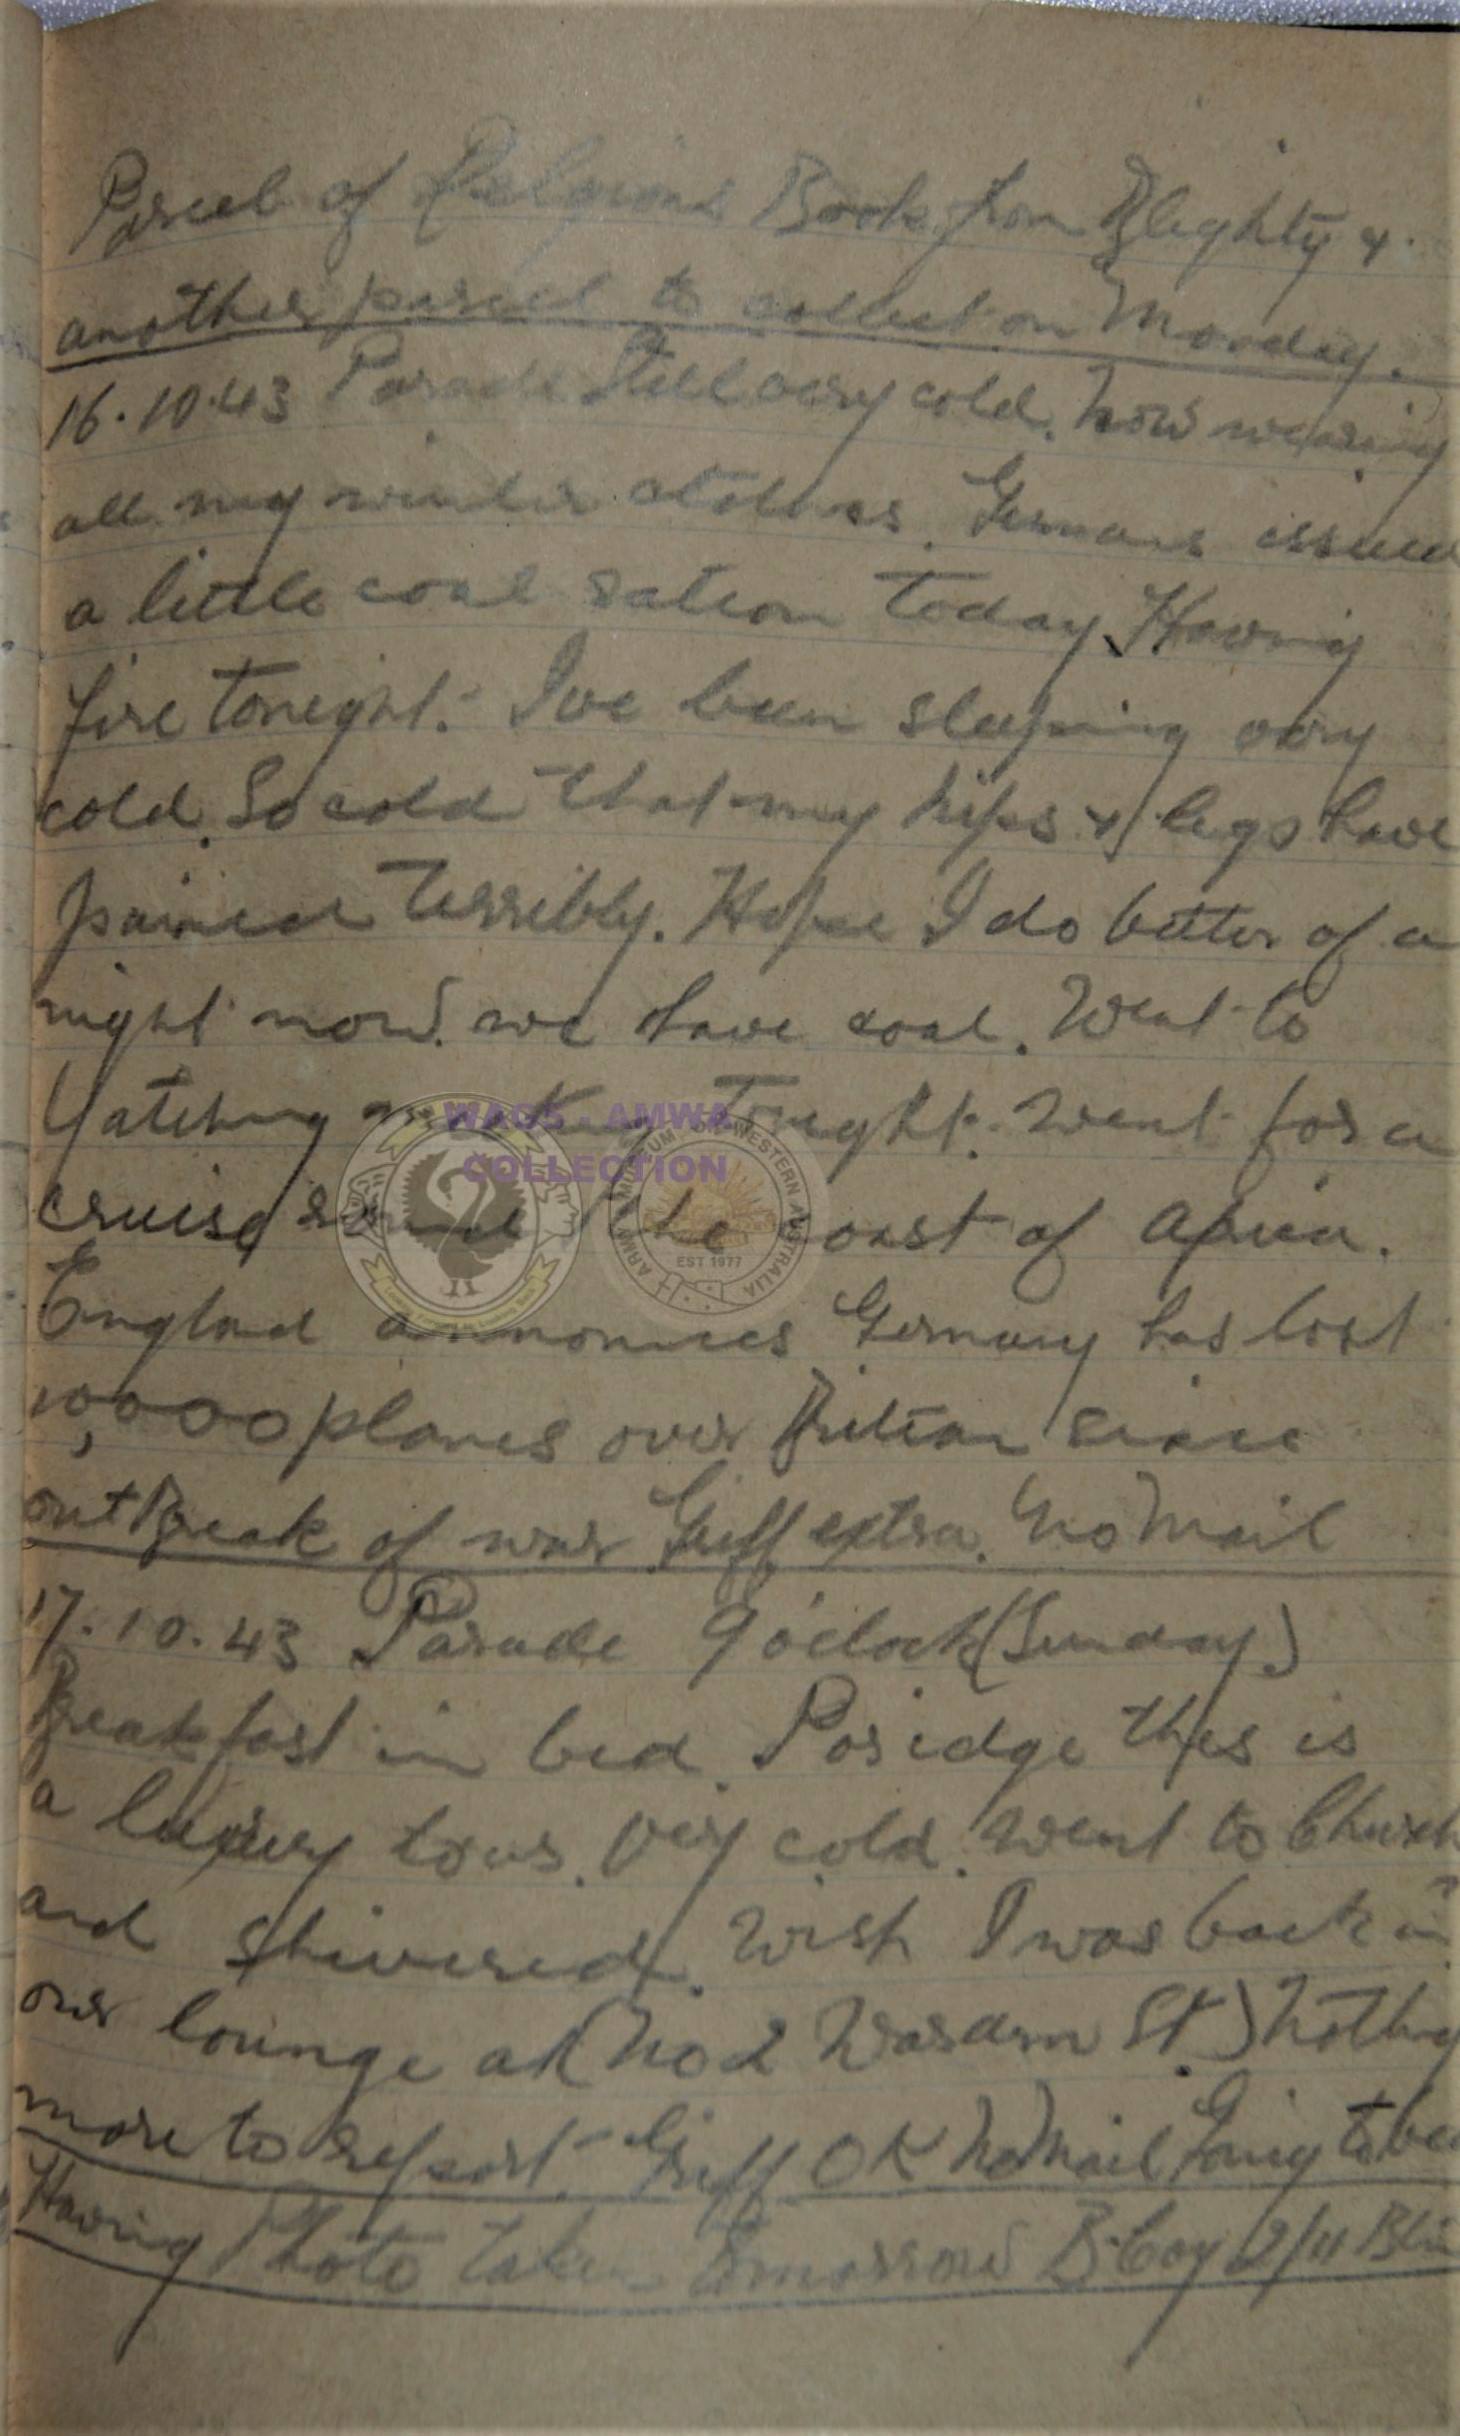 Parcel of Religious Books from Blighty &
another parcel to collect on Monday.
16.10.43 Parade Still very cold. Now wearing
all my winter clothes. Germans issued
a little coal ration today. Having
fire tonight. I've been sleeping very
cold. So cold that my hips & legs have
pained terribly. Hope I do better of a
night now we have coal. Went to
Yatching tonight. Went for a
cruise round the coast of Africa.
England announces Germany has lost
10,000 planes over Britian since
outBreak of war. Griff extra. No Mail
17.10.43 Parade 9 o'clock (Sunday)
Breakfast in bed. Poridge this is
a luxury to us. Very cold. Went to Church
and shivered. Wish I was back in
our lounge at (No 2 St.) Nothing
more to report. Griff OK No Mail Going to bed
Having Photo taken tomorrow B. Coy 2/11 Btn
WAGS - AMWA
COLLECTION
ARMY MUSEUM OF WESTERN AUSTRALIA
EST 1977